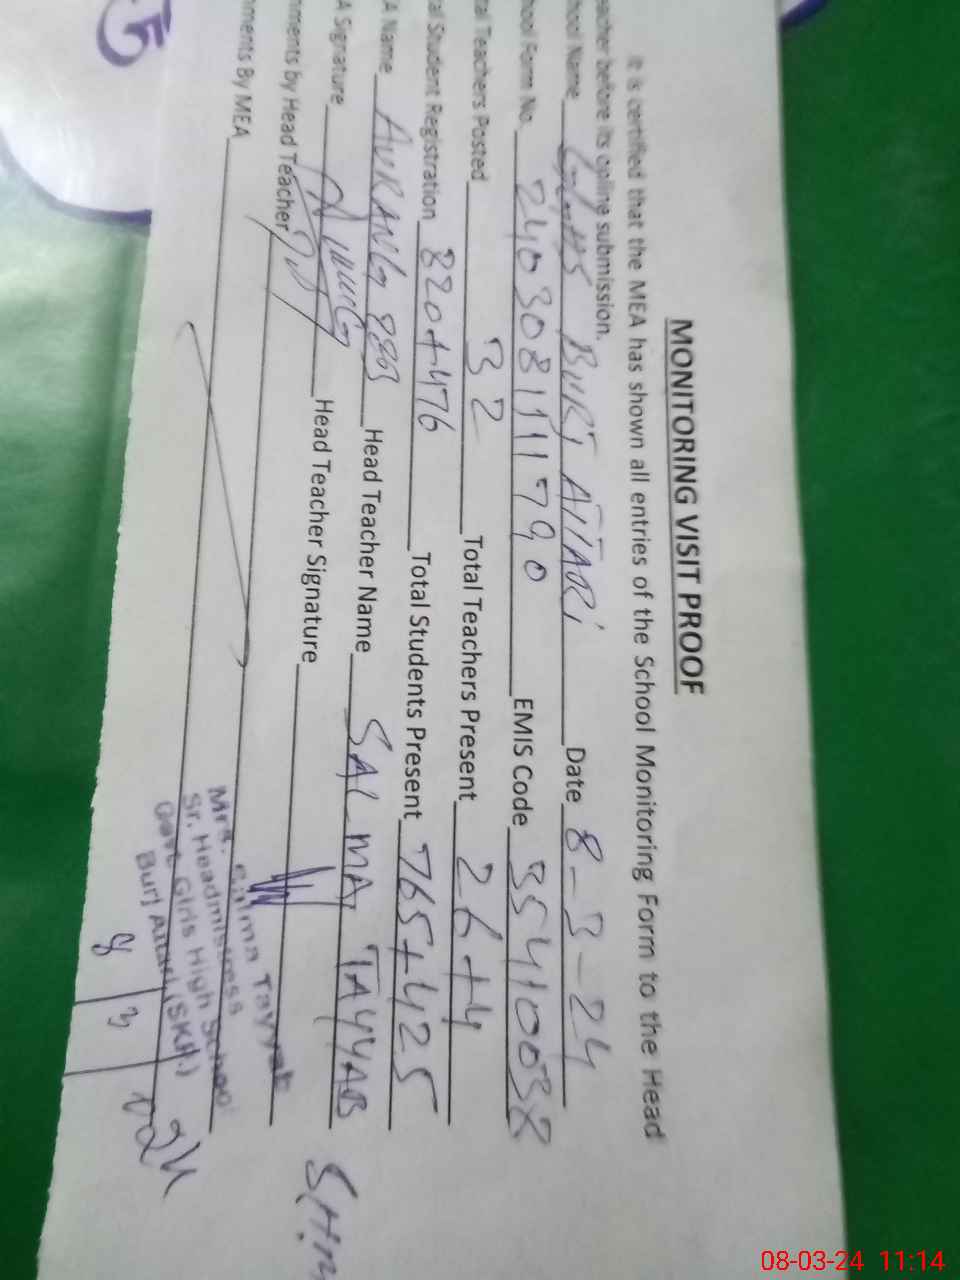 MONITORING VISIT PROOF
It is certified that the MEA has shown all entries of the School Monitoring Form to the Head
eacher before its online submission.
hool Name GGHS BURJ ATTARI Date 8-3-24
hool Form No. 240308111790 EMIS Code 35410038
tal Teachers Posted 32 Total Teachers Present 26+4
al Student Registration 820+476 Total Students Present 765+425
A Name AURANG 8803 Head Teacher Name SALMA TAYYAB
A Signature Head Teacher Signature
nments by Head Teacher
nments By MEA
Mrs. Salma Tayyab
Sr. Headmistress
Govt. Girls High School
Burj Attari (SKP.)
8 3 024
5
08-03-24 11:14